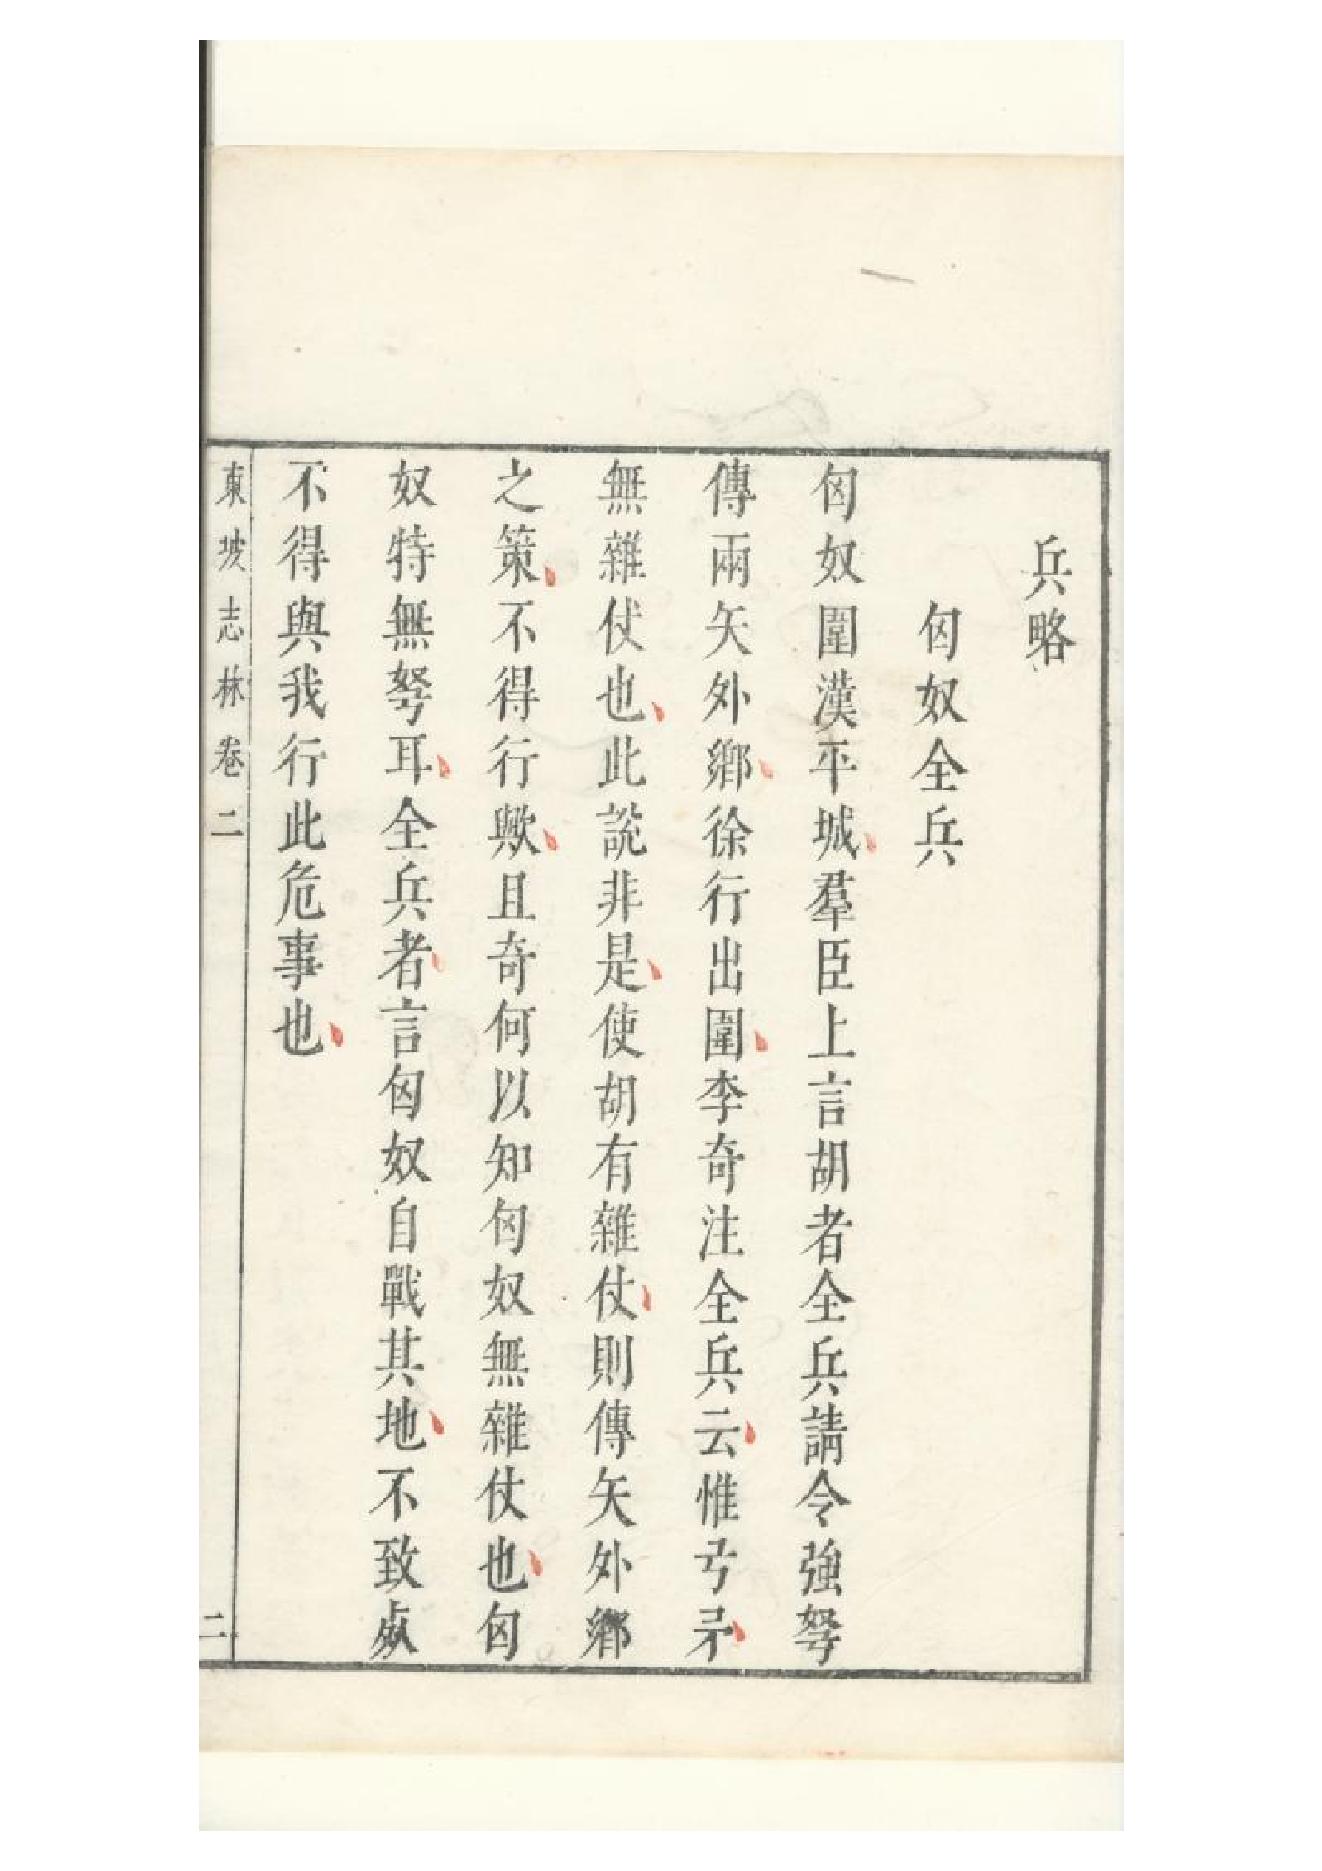 兵略
匈奴全兵
匈奴圍漢平城羣臣上言胡者全兵請令強弩
傳兩矢外鄉徐行出圍李奇注全兵云惟弓矛
無雜仗也此說非是使胡有雜仗則傳矢外鄉
之策不得行歟且奇何以知匈奴無雜仗也匈
奴特無弩耳全兵者言匈奴自戰其地不致死
不得與我行此危事也
東坡志林卷二
二